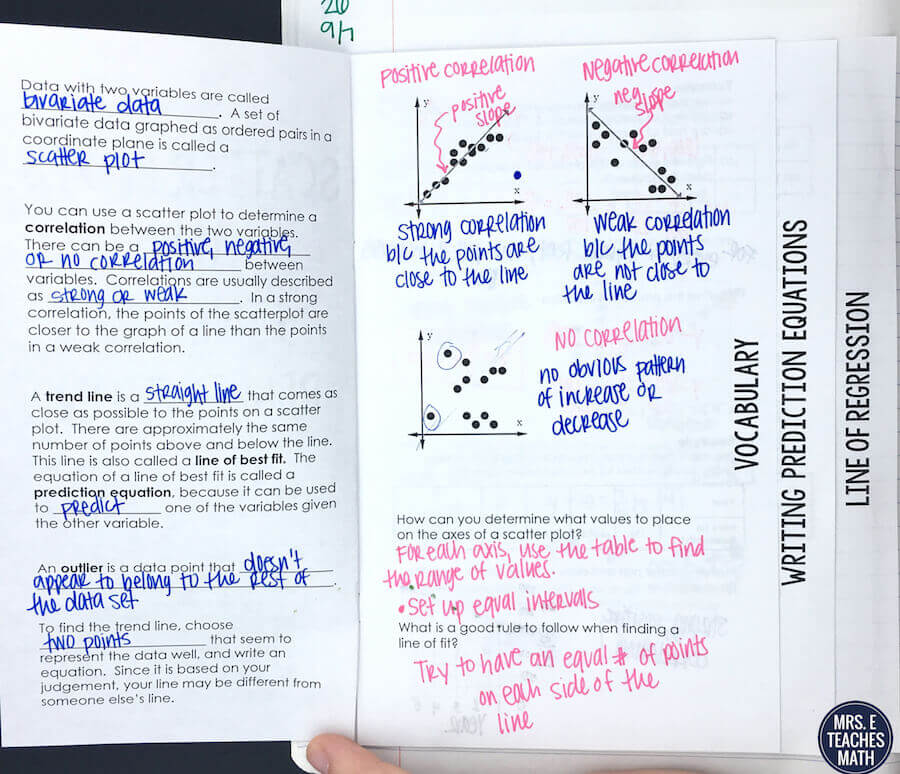 210
9/7
Data with two variables are called
bivariate data. A set of
bivariate data graphed as ordered pairs in a
coordinate plane is called a
scatter plot.
You can use a scatter plot to determine a
correlation between the two variables.
There can be a positive, negative,
or no correlation between
variables. Correlations are usually described
as strong or weak. In a strong
correlation, the points of the scatterplot are
closer to the graph of a line than the points
in a weak correlation.
A trend line is a straight line that comes as
close as possible to the points on a scatter
plot. There are approximately the same
number of points above and below the line.
This line is also called a line of best fit. The
equation of a line of best fit is called a
prediction equation, because it can be used
to predict one of the variables given
the other variable.
An outlier is a data point that doesn't
appear to belong to the rest of
the data set.
To find the trend line, choose
two points that seem to
represent the data well, and write an
equation. Since it is based on your
judgement, your line may be different from
someone else's line.
Positive correlation
positive
slope
y
x
strong correlation
b/c the points are
close to the line
Negative correlation
neg
slope
y
x
weak correlation
b/c the points
are not close to
the line
y
x
No correlation
no obvious pattern
of increase or
decrease
How can you determine what values to place
on the axes of a scatter plot?
For each axis, use the table to find
the range of values.
• Set up equal intervals
What is a good rule to follow when finding a
line of fit?
Try to have an equal # of points
on each side of the
line
VOCABULARY
WRITING PREDICTION EQUATIONS
LINE OF REGRESSION
MRS. E
TEACHES
MATH